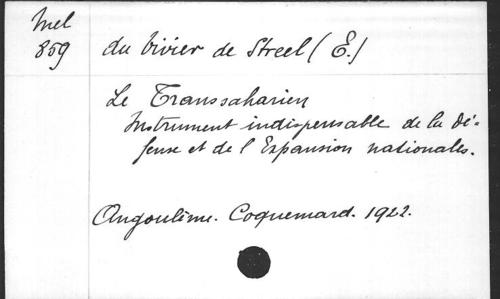 Mel
859
du Vivier de Streel (E.)
Le Transsaharien
Instrument indispensable de la Dé-
fense et de l'Expansion nationales.
Angoulême. Coquemard. 1922.